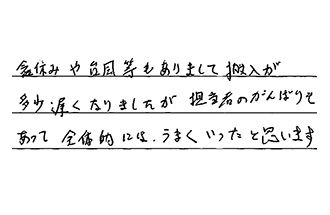 盆休みや台風等もありまして搬入が
多少遅くなりましたが担当者のがんばりも
あって全体的にはうまくいったと思います